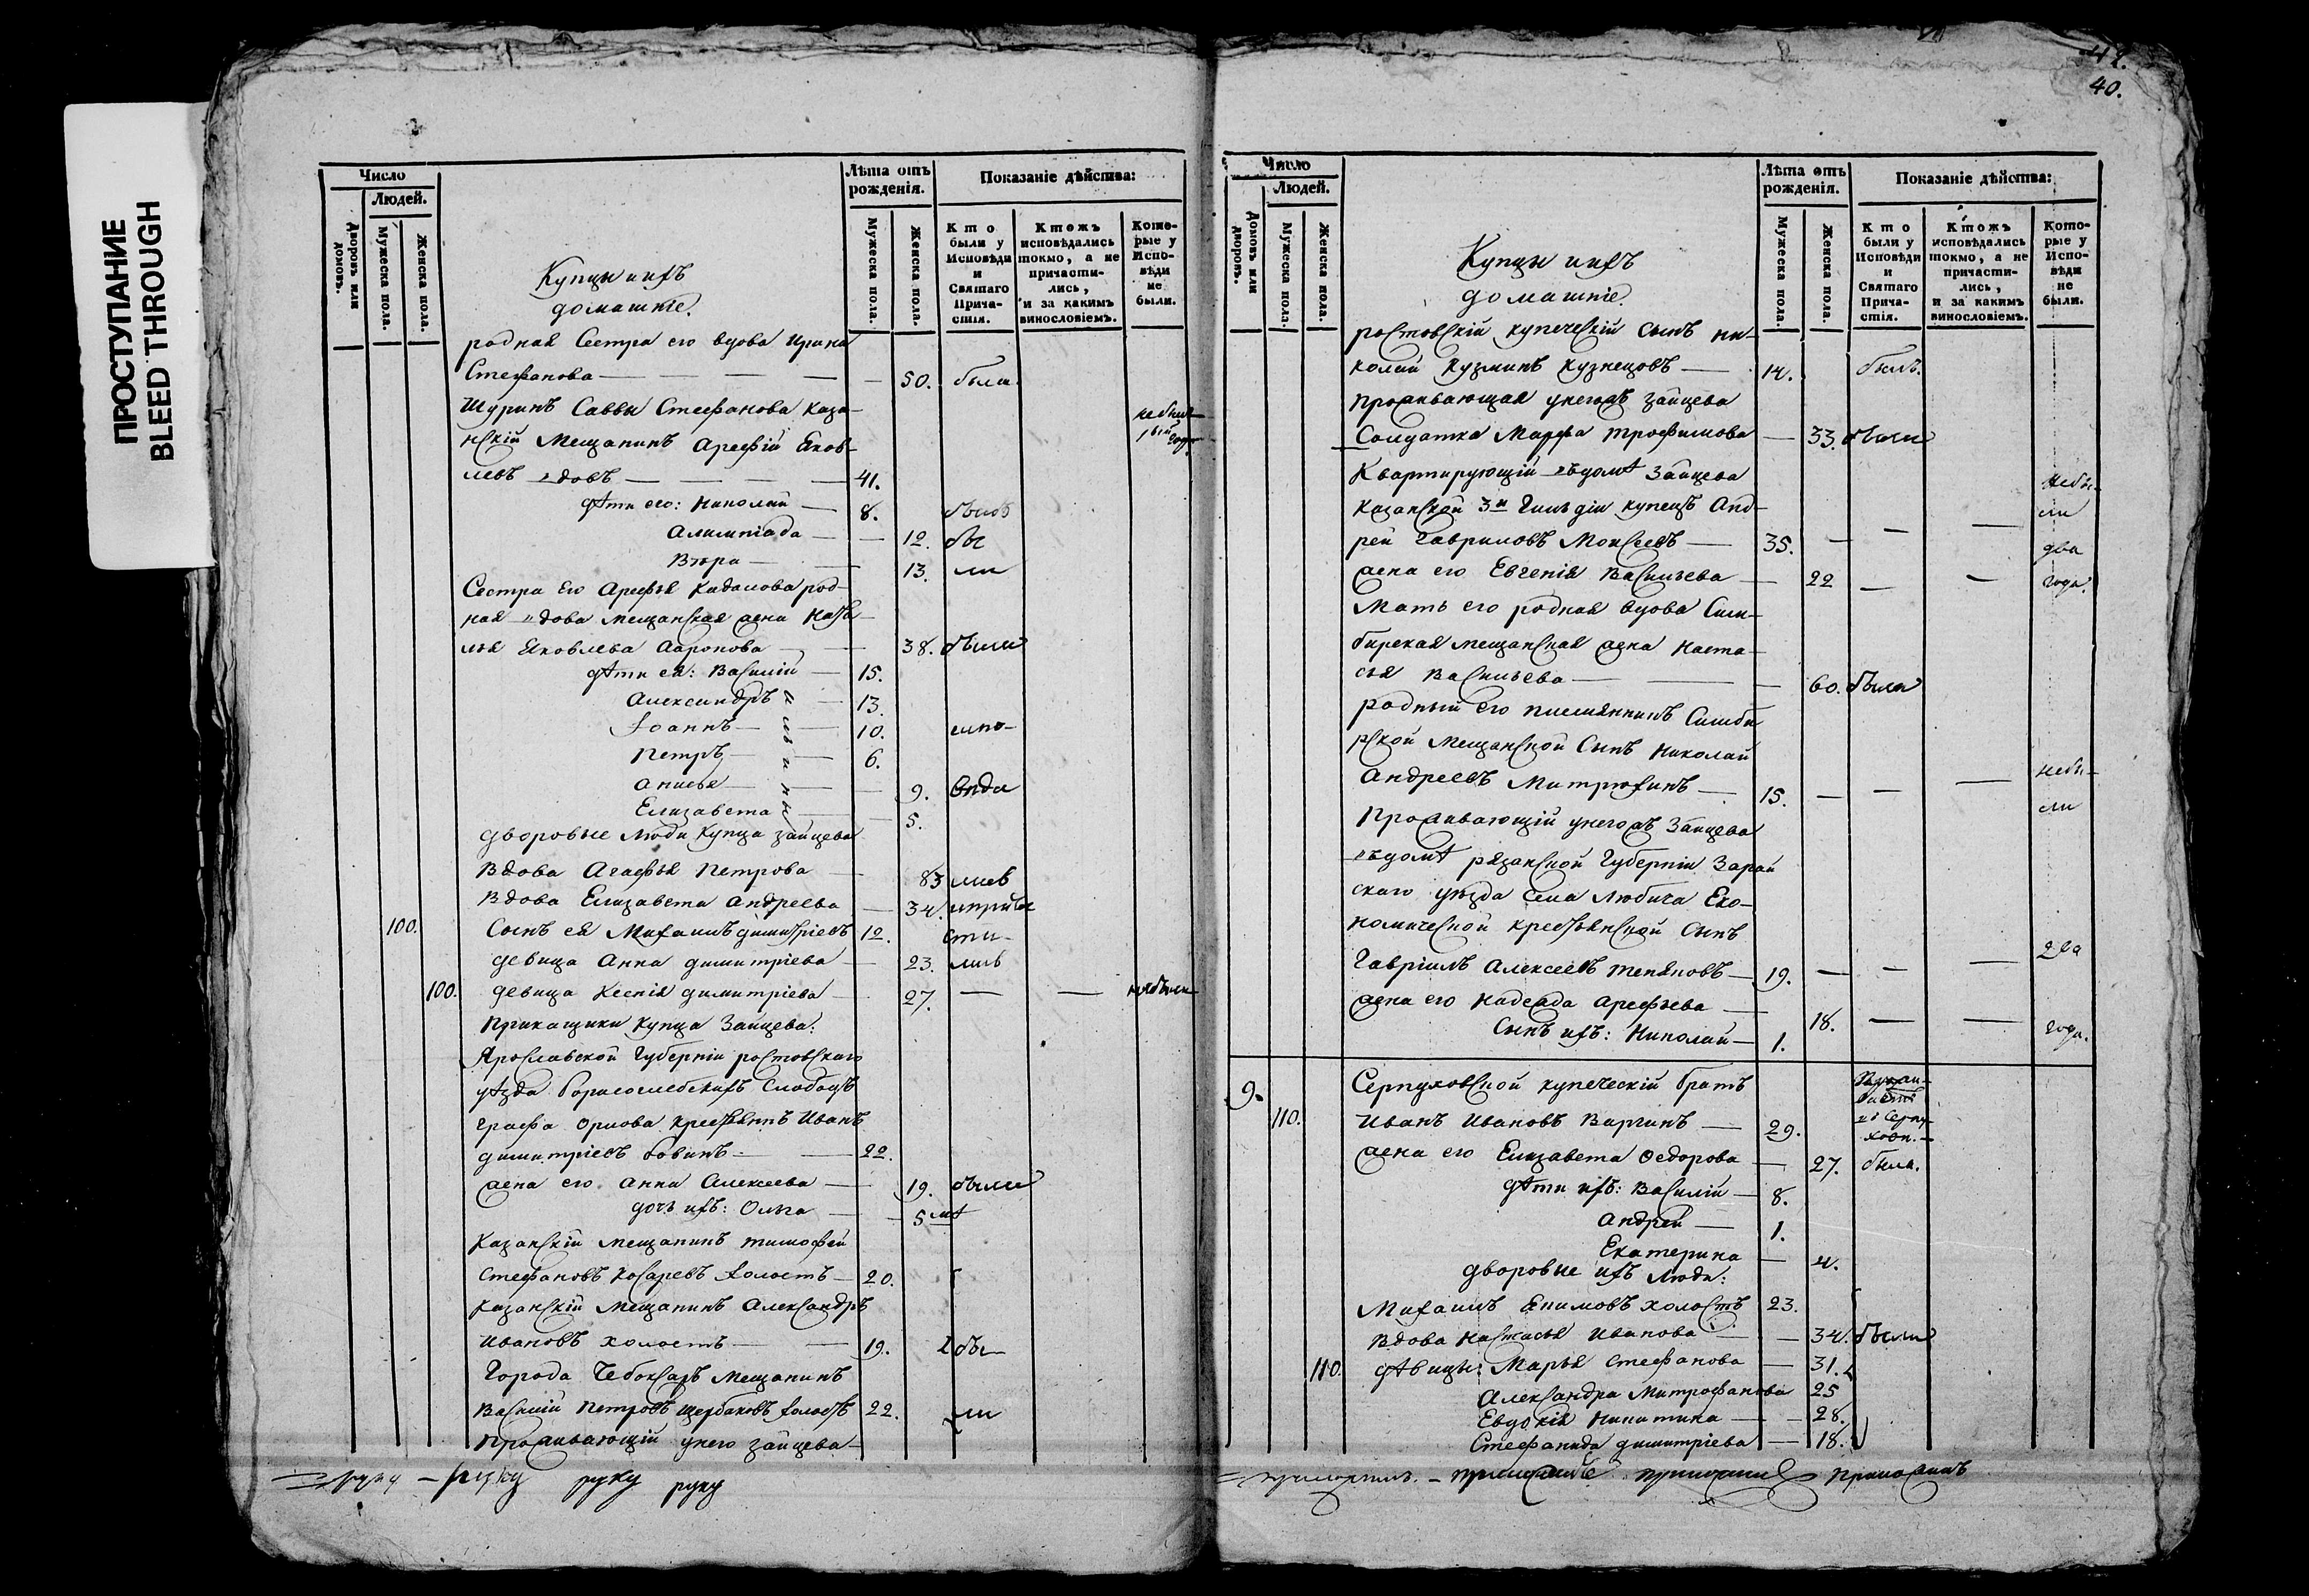 ПРОСТУПАНИЕ
BLEED THROUGH
Число
Людей.
Дворовъ или домовъ.
Мужеска пола.
Женска пола.
Лѣта отъ рожденія.
Мужеска пола.
Женска пола.
Показаніе дѣйства:
Кто были у Исповѣди и Святаго Причастія.
Ктожъ исповѣдались токмо, а не причастились, и за какимъ винословіемъ.
Которые у Исповѣди не были.
Купцы ихъ
домашніе.
родная Сестра его вдова Ирина
Стефанова — — 50. была
Шуринъ Саввы Стефанова Каза-
нскій Мещанинъ Арефій Яков-
левъ вдовъ — 41.
дѣти его: Николай — 8. былъ
Алимпіада — 12. бы
Вѣра — 13. ли
Сестра Его Арефья род-
ная вдова мещанская жена Ната-
лья Яковлева Ааронова — 38. были
дѣти ея: Василій — 15.
Александръ — 13.
Іоаннъ — 10.
Петръ — 6.
Анисья — 9.
Елизавета — 5.
дворовые люди Купца Зайцева
Вдова Агафья Петрова — 83
Вдова Елизавета Андреева — 34.
100. Сынъ ея Михаилъ Димитріевъ 12. сти-
девица Анна Димитріева — 23. лись
100. девица Ксенія Димитріева — 27. — — небыла
Прикащики Купца Зайцева:
Ярославской Губерніи ростовскаго
уѣзда Борисоглебскихъ Слободъ
графа Орлова Крестьянинъ Иванъ
Димитріевъ Бовинъ — 22.
жена его Анна Алексеева — 19. были
дочь ихъ: Ольга — 5
Казанскій мещанинъ Тимофей
Стефановъ Косаревъ холостъ — 20.
Казанскій мещанинъ Александръ
Ивановъ холостъ — 19. бы-
Города Чебоксаръ Мещанинъ
Василій Петровъ Щербаковъ холостъ 22. ли
Проживающій унего Зайцева
руку — руку руку руку
40.
Число
Людей.
Домовъ или дворовъ.
Мужеска пола.
Женска пола.
Лѣта отъ рожденія.
Мужеска пола.
Женска пола.
Показаніе дѣйства:
Кто были у Исповѣди и Святаго Причастія.
Ктожъ исповѣдались токмо, а не причастились, и за какимъ винословіемъ.
Которые у Исповѣди не были.
Купцы ихъ
домашніе.
ростовскій купеческій сынъ Ни-
колай Кузминъ Кузнецовъ — 14. былъ.
Проживающая унегожъ Зайцева
Солдатка Марфа Трофимова — 33. была
Квартирующій въдомѣ Зайцева
Казанской 3й Гильдіи купецъ Анд- небы-
рей Гавриловъ Моисеевъ — 35. — — ли
жена его Евгенія Васильева — 22 — — два года.
Мать его родная вдова Сим-
бирская мещанская жена Наста-
сья Васильева — 60. была
родный его племянникъ Симби
рской мещанской Сынъ Николай
Андреевъ Митрюхинъ — 15. — — — небы-
ли
Проживающій унегожъ Зайцева
въдомѣ рязанской Губерніи Зарай
скаго уѣзда Села Любича Еко-
номической крестьянской Сынъ
Гавріилъ Алексеевъ Тепяновъ — 19. — — — два
жена его Надежда Арефьева — 18. — —
Сынъ ихъ: Николай — 1. года.
9. Серпуховской купеческій братъ
110. Иванъ Ивановъ Варгинъ — 29.
жена его Елизавета Федорова — 27. была.
дѣти ихъ: Василій — 8.
Андрей — 1.
Екатерина — 4.
дворовые ихъ люди:
Михаилъ Екимовъ холостъ 23.
Вдова Настасья Иванова — 34. были
110. дѣвицы: Марья Стефанова — 31.
Александра Митрофанова 25
Евдокія Никитина — 28.
Стефанида Димитріева — 18.
приложилъ. — приложилъ приложилъ приложилъ